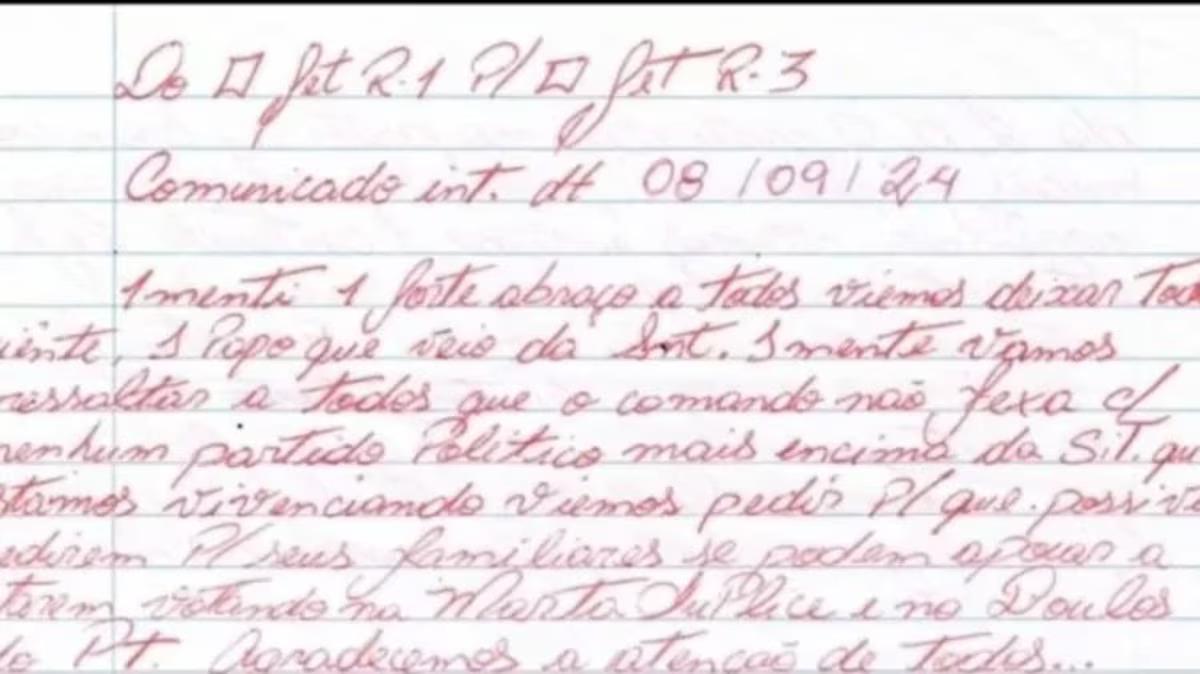 Do jet R.1 P/ jet R.3
Comunicado int. dt 08/09/24
1menti 1 forte abraço a todos viemos deixar Tod
iente, 1 Papo que veio da Sint. 1mente vamos
ressaltar a todos que o comando não fexa c/
nenhum partido Politico mais encima da S.T. qu
stamos vivenciando viemos pedir P/ que possiv
edirem P/ seus familiares se podem apoiar a
tarem votando na Marta SuPlice e no Boulos
do PT. Agradecemos a atenção de todos...